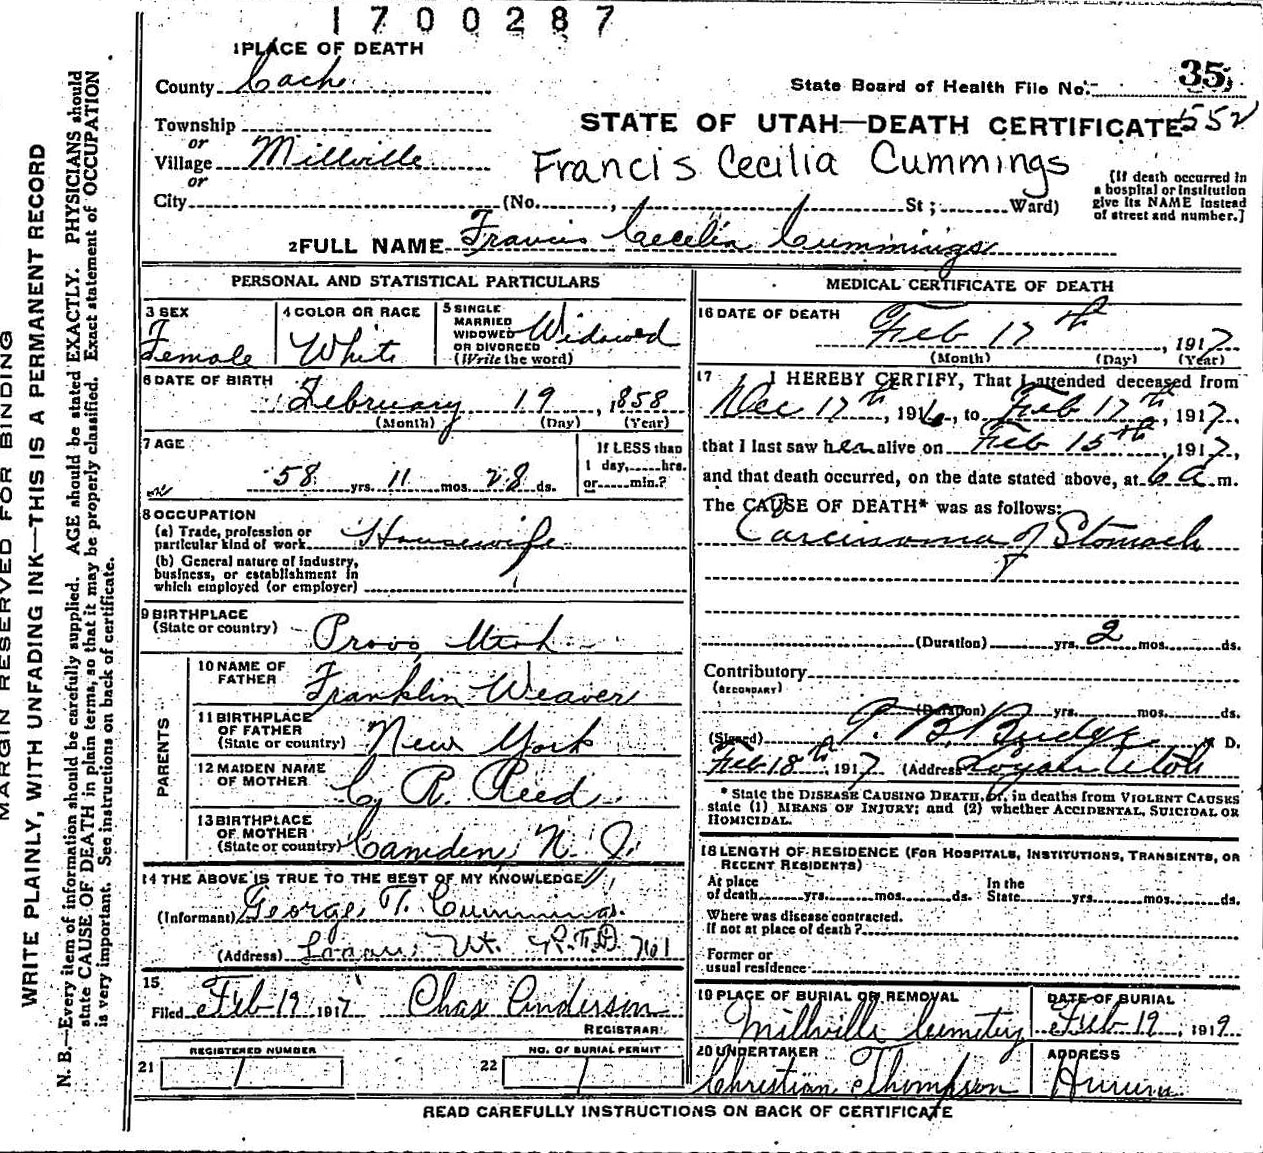 1700287
1 PLACE OF DEATH
County Cache
State Board of Health File No. 35
Township
or
Village Millville
or
City (No. , St ; Ward)
STATE OF UTAH—DEATH CERTIFICATE 552
Francis Cecilia Cummings
[If death occurred in
a hospital or institution
give its NAME instead
of street and number.]
2 FULL NAME Francis Cecelia Cummings
PERSONAL AND STATISTICAL PARTICULARS
3 SEX
Female
4 COLOR OR RACE
White
5 SINGLE
MARRIED
WIDOWED
OR DIVORCED
(Write the word)
Widowed
6 DATE OF BIRTH
February 19, 1858
(Month) (Day) (Year)
7 AGE
58 yrs. 11 mos. 28 ds.
If LESS than
1 day, hrs.
or min.?
8 OCCUPATION
(a) Trade, profession or
particular kind of work Housewife
(b) General nature of industry,
business, or establishment in
which employed (or employer)
9 BIRTHPLACE
(State or country)
Provo, Utah
PARENTS
10 NAME OF
FATHER
Franklin Weaver
11 BIRTHPLACE
OF FATHER
(State or country) New York
12 MAIDEN NAME
OF MOTHER
C. R. Reed
13 BIRTHPLACE
OF MOTHER
(State or country) Camden N. J.
14 THE ABOVE IS TRUE TO THE BEST OF MY KNOWLEDGE
(Informant) George T. Cummings.
(Address) Logan, Ut. R.F.D. No1
15
Filed Feb 19 1917 Chas Anderson
REGISTRAR
REGISTERED NUMBER
21 1
NO. OF BURIAL PERMIT
22 1
MEDICAL CERTIFICATE OF DEATH
16 DATE OF DEATH
Feb 17th, 1917
(Month) (Day) (Year)
17 I HEREBY CERTIFY, That I attended deceased from
Dec 17th, 1916, to Feb 17th, 1917,
that I last saw her alive on Feb 15th, 1917,
and that death occurred, on the date stated above, at 6 a m.
The CAUSE OF DEATH* was as follows:
Carcinoma of Stomach
(Duration) yrs. 2 mos. ds.
Contributory
(SECONDARY)
(Duration) yrs. mos. ds.
(Signed) T. B. Budge M. D.
Feb 18th, 1917 (Address) Logan Utah
* State the DISEASE CAUSING DEATH, or, in deaths from VIOLENT CAUSES
state (1) MEANS OF INJURY; and (2) whether ACCIDENTAL, SUICIDAL OR
HOMICIDAL.
18 LENGTH OF RESIDENCE (FOR HOSPITALS, INSTITUTIONS, TRANSIENTS, OR
RECENT RESIDENTS)
At place
of death yrs. mos. ds.
In the
State yrs. mos. ds.
Where was disease contracted.
if not at place of death?
Former or
usual residence
19 PLACE OF BURIAL OR REMOVAL
Millville Cemetery
DATE OF BURIAL
Feb 19, 1919
20 UNDERTAKER
Christian Thompson
ADDRESS
READ CAREFULLY INSTRUCTIONS ON BACK OF CERTIFICATE
MARGIN RESERVED FOR BINDING
WRITE PLAINLY, WITH UNFADING INK—THIS IS A PERMANENT RECORD
N. B.—Every item of information should be carefully supplied. AGE should be stated EXACTLY. PHYSICIANS should
state CAUSE OF DEATH in plain terms, so that it may be properly classified. Exact statement of OCCUPATION
is very important. See instructions on back of certificate.